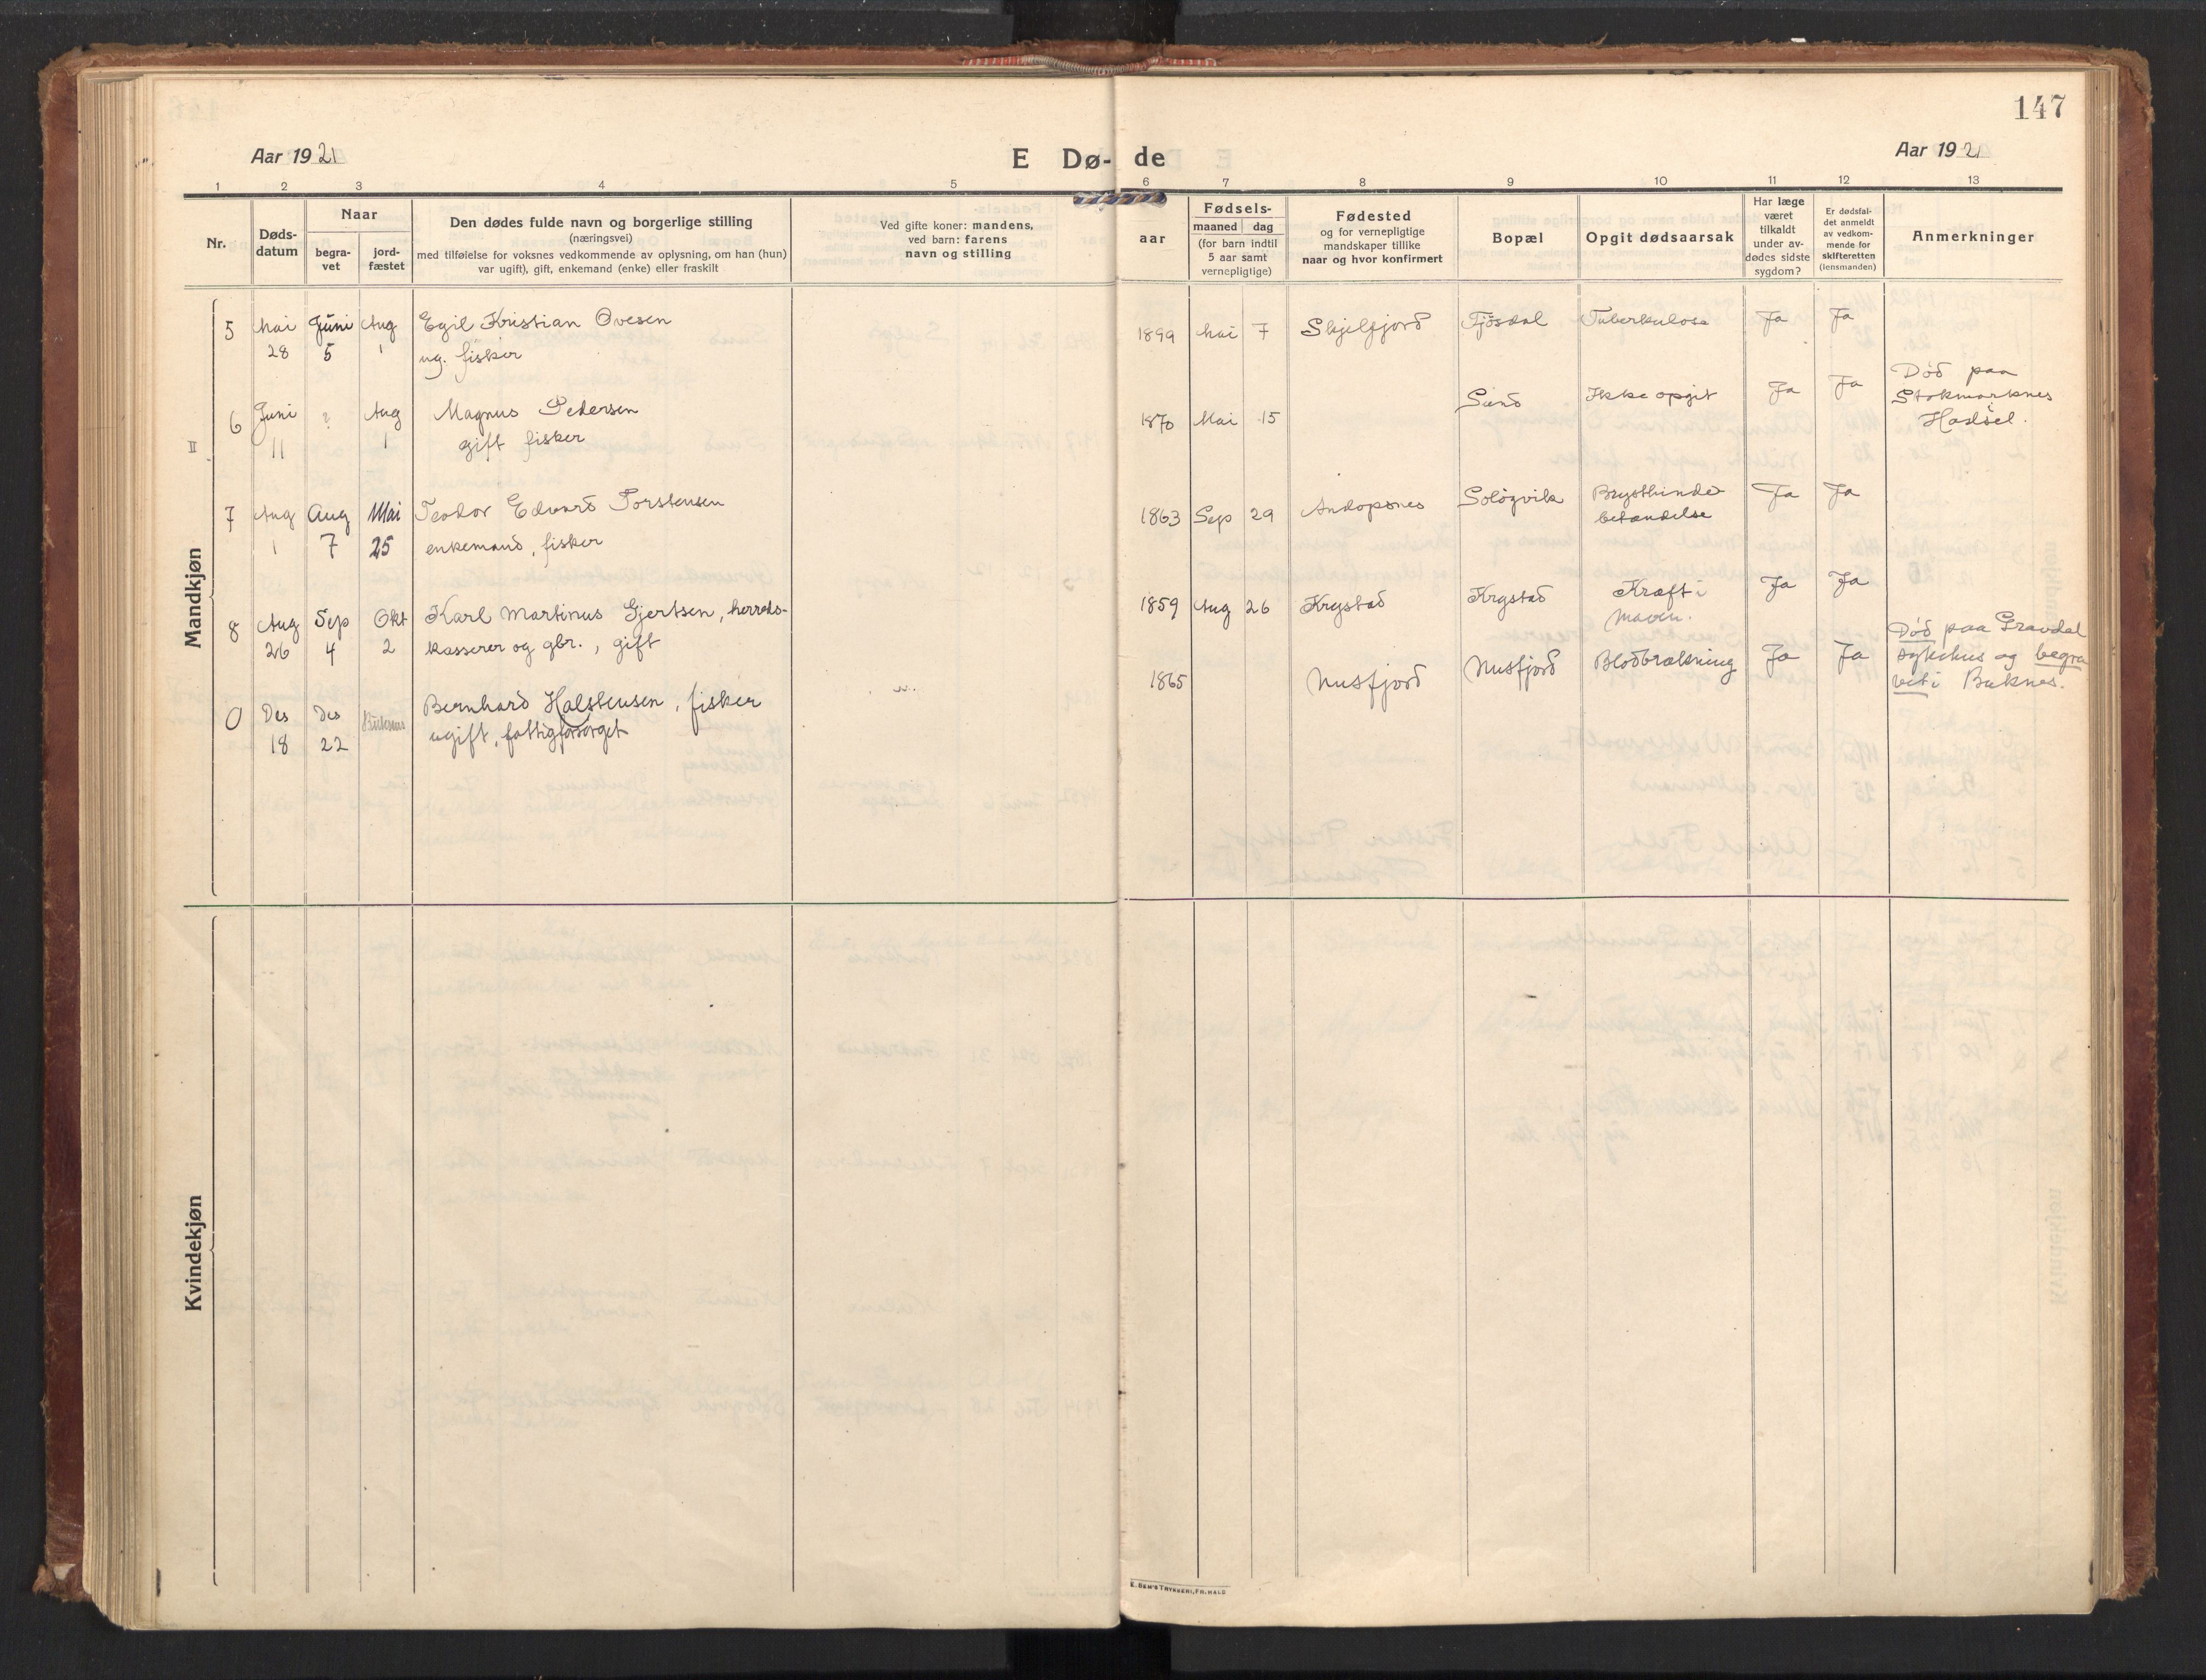 147
Aar 1921
E Dø- de
Aar 1921
1 2 3 4 5 6 7 8 9 10 11 12 13
Nr.
Døds-
datum
Naar
begra-
vet
jord-
fæstet
Den dødes fulde navn og borgerlige stilling
(næringsvei)
med tilføielse for voksnes vedkommende av oplysning, om han (hun)
var ugift), gift, enkemand (enke) eller fraskilt
Ved gifte koner: mandens,
ved barn: farens
navn og stilling
aar
Fødsels-
maaned dag
(for barn indtil
5 aar samt
vernepligtige)
Fødested
og for vernepligtige
mandskaper tillike
naar og hvor konfirmert
Bopæl
Opgit dødsaarsak
Har læge
været
tilkaldt
under av-
dødes sidste
sygdom?
Er dødsfal-
det anmeldt
av vedkom-
mende for
skifteretten
(lensmanden)
Anmerkninger
Mandkjøn
II
5 Mai Juni Aug Egil Kristian Ovesen 1899 Mai 7 Skjelfjord Fjøsdal Tuberkulose Ja Ja
28 5 1 ug. fisker
6 Juni ? Aug Magnus Pedersen 1870 Mai 15 Sund Ikke opgit Ja Ja Død paa
11 1 gift fisker Stokmarknes
Hadsel.
7 Aug Aug Mai Teodor Edvard Torstensen 1863 Sep 29 Andopsnes Soløgvik Brysthinde Ja Ja
1 7 25 enkemand, fisker betændelse
8 Aug Sep Okt Karl Martinus Gjertsen, herreds- 1859 Aug 26 Krystad Krystad Kræft i Ja Ja
26 4 2 kasserer og gbr., gift maven.
0 Des Des Buksnes Bernhard Halstensen, fisker 1865 Nusfjord Nusfjord Blodbrækning Ja Ja Død paa Gravdal
18 22 ugift, fattigforsørget sykehus og begra
vet i Buknes.
Kvindekjøn
E. SEM'S TRYKKERI, FR.HALD